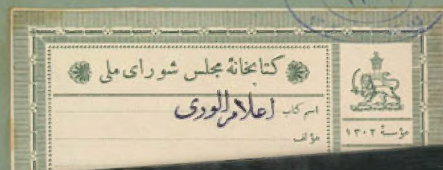 کتابخانهٔ مجلس شورای ملی
اسم کتاب اعلام الوری
مؤلف
مؤسسهٔ ۱۳۰۲